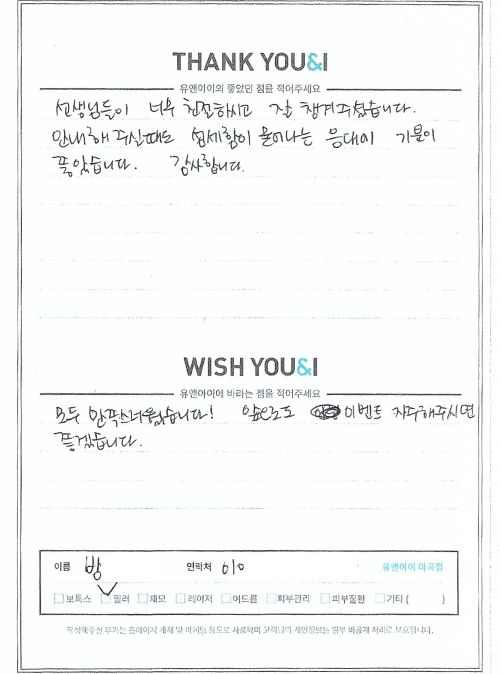 THANK YOU&I
유앤아이의 좋았던 점을 적어주세요
선생님들이 너무 친절하시고 잘 챙겨주셨습니다.
안내해 주실때도 섬세함이 묻어나는 응대에 기분이
좋았습니다. 감사합니다.
WISH YOU&I
유앤아이에 바라는 점을 적어주세요
모두 만족스러웠습니다! 앞으로도 이벤트 자주해주시면
좋겠습니다.
이름 방 연락처 010 유앤아이 마곡점
보톡스 필러 제모 레이저 여드름 피부관리 피부질환 기타 ( )
작성해주신 후기는 홈페이지 게재 및 마케팅 용도로 사용되며 고객님의 개인정보는 일부 비공개 처리로 보호됩니다.